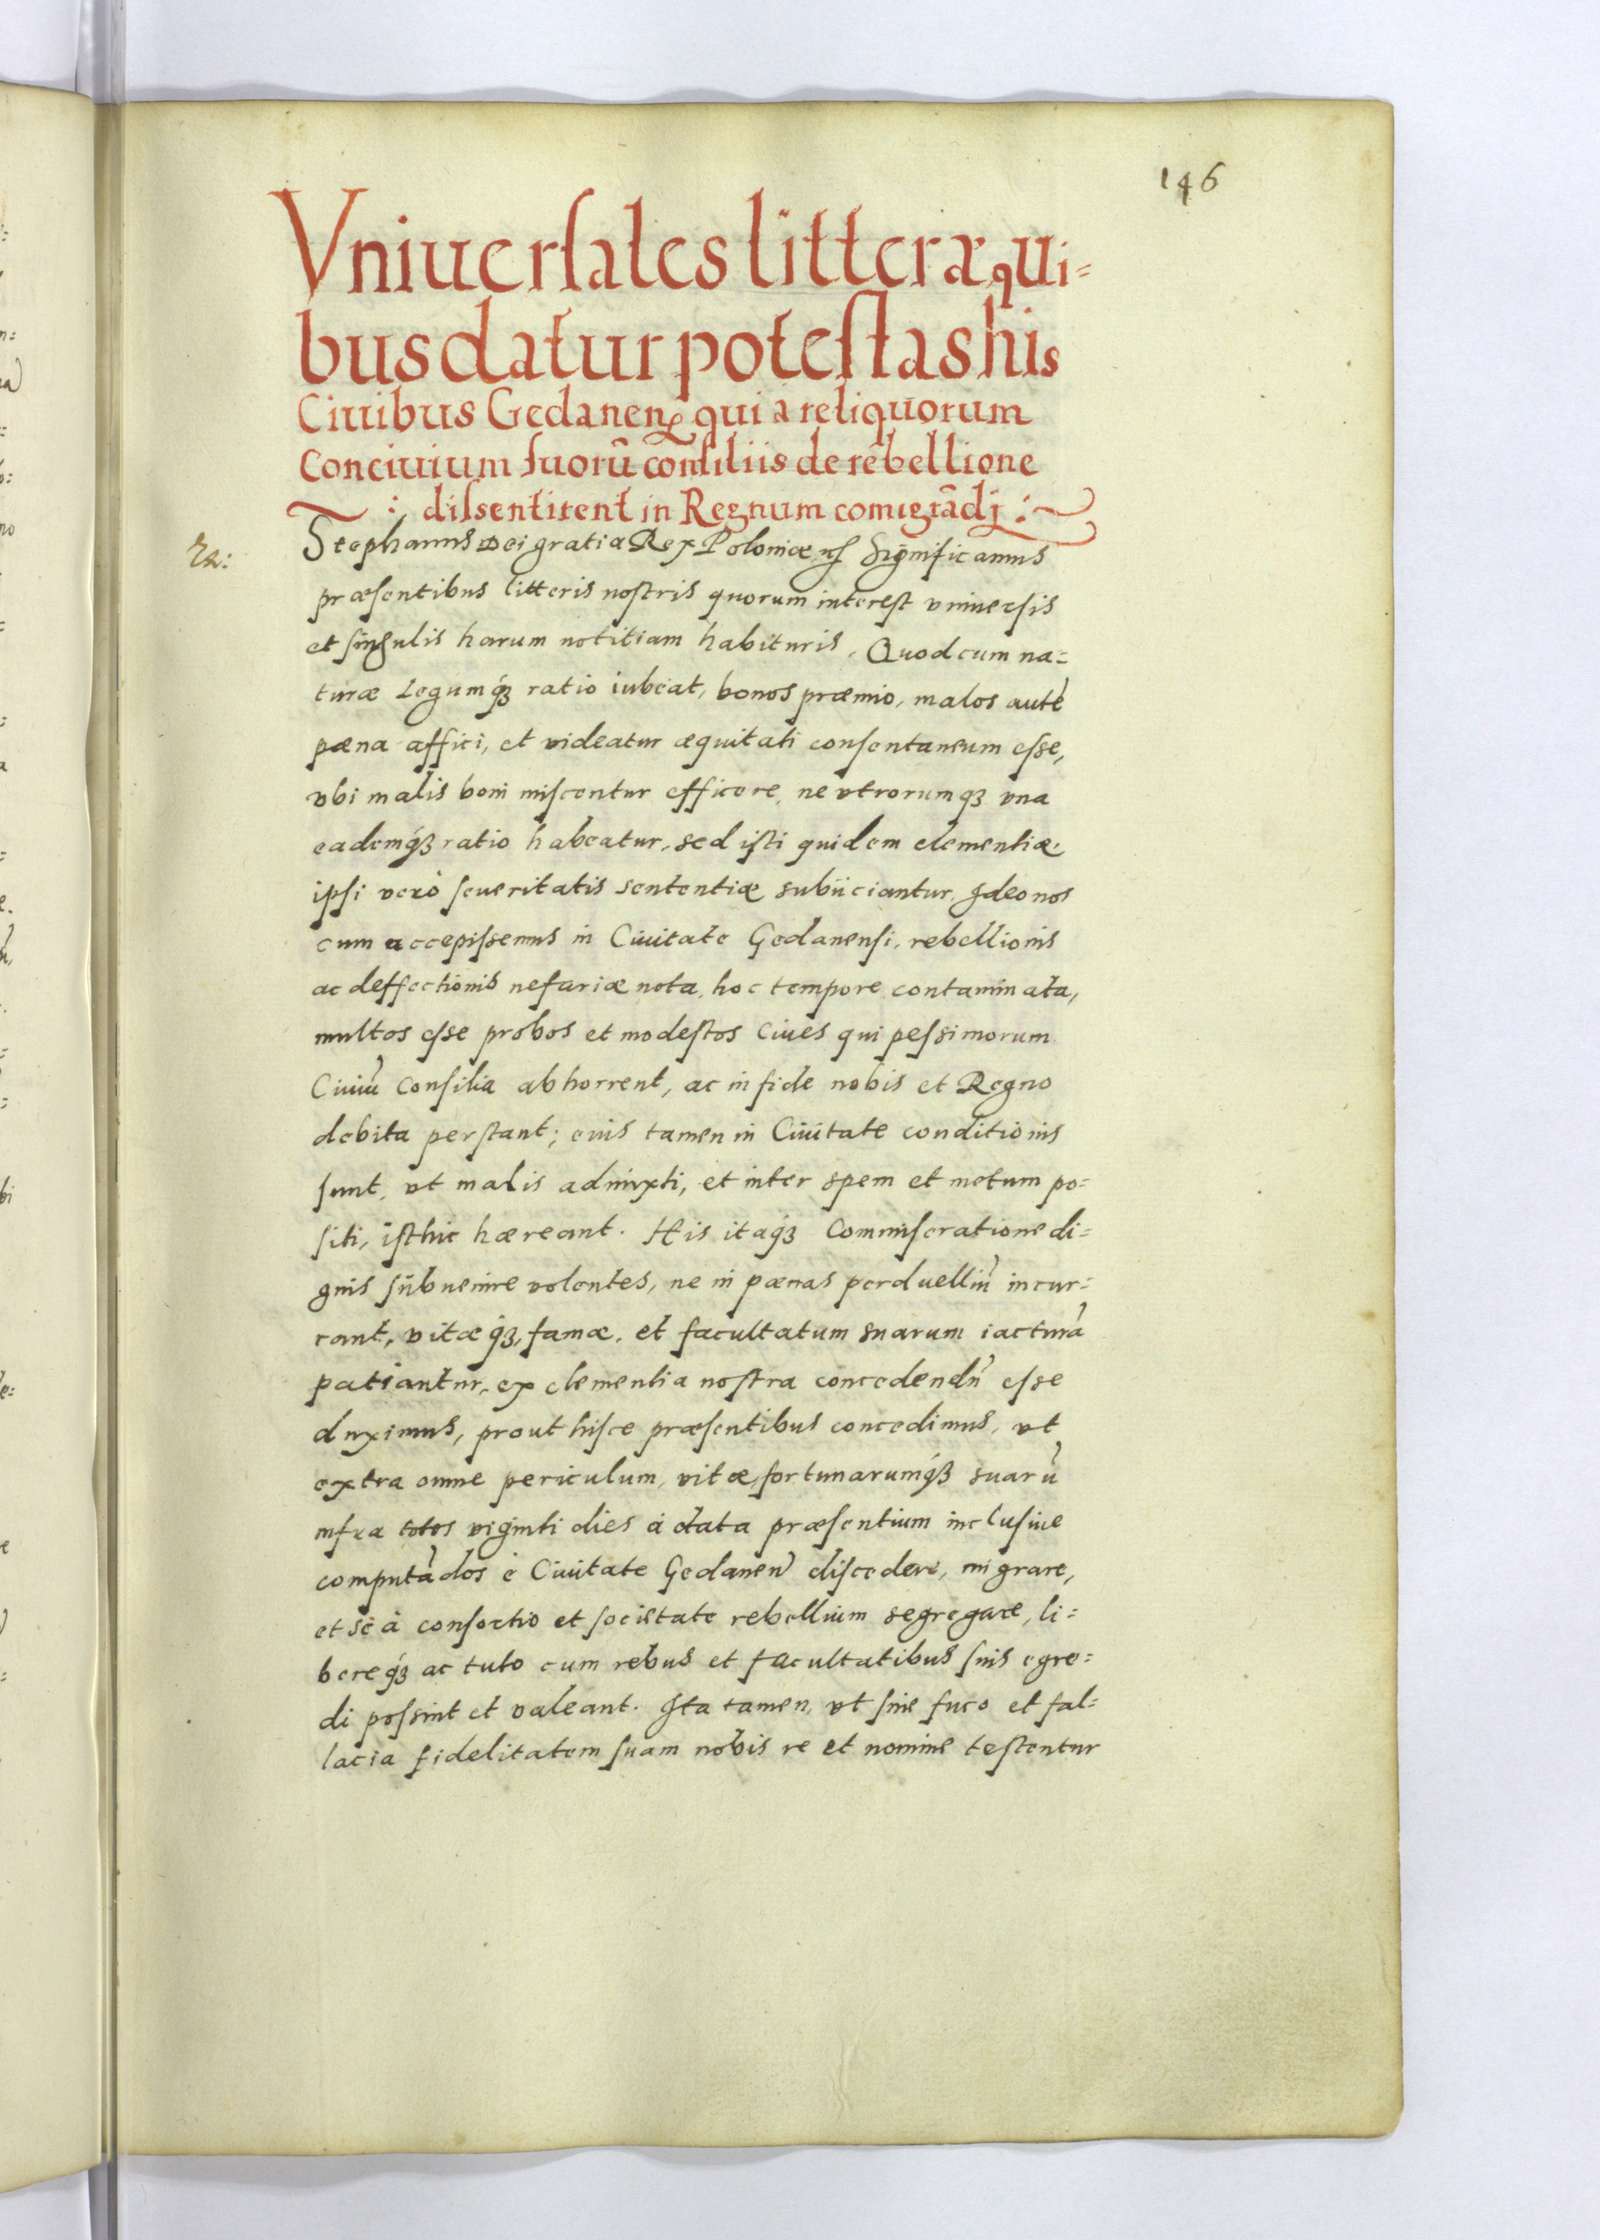 146
Vniuersales litteræ qui=
bus datur potestas his
Ciuibus Gedanen qui a reliquorum
Conciuium suorũ consiliis de rebellione
dissentirent in Regnum comigrãdj
Stephanus Dei gratia Rex Poloniæ Significamus
præsentibus litteris nostris quorum interest vniuersis
et singulis harum notitiam habituris. Quod cum na=
turæ Legumqꝫ ratio iubeat, bonos præmio, malos autẽ
pæna affici, et videatur æquitati consentaneum esse,
vbi malis boni miscentur efficere, ne vtrorumqꝫ vna
eademqꝫ ratio habeatur, sed isti quidem clementiæ,
ipsi verò seueritatis sententiæ subiiciantur. Ideo nos
cum accepissemus in Ciuitate Gedanensi, rebellionis
ac deffectionis nefariæ nota, hoc tempore contaminata,
multos esse probos et modestos Ciues qui pessimorum
Ciuiũ Consilia abhorrent, ac in fide nobis et Regno
debita perstant; euis tamen in Ciuitate conditionis
sunt, vt malis admixti, et inter spem et metum po=
siti, isthic hæreant. His itaqꝫ Commiseratione di=
gnis subuenire volentes, ne in pænas perduelliũ incur=
rant, vitæqꝫ, famæ, et facultatum suarum iacturã
patiantur, ex clementia nostra concedendũ esse
duximus, prout hisce præsentibus concedimus, vt
extra omne periculum, vitæ, fortunarumqꝫ suarũ
infra totos viginti dies à data præsentium inclusiue
computãdos è Ciuitate Gedanen̄ discedere, migrare,
et se à consortio et societate rebellium segregare, li=
bereqꝫ ac tuto cum rebus et facultatibus suis egre=
di possint et valeant. Ita tamen, vt sine fuco et fal=
lacia fidelitatem suam nobis re et nomine testentur